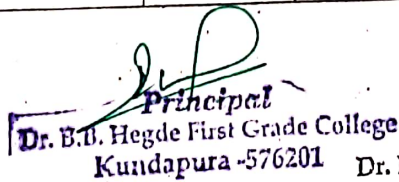 Principal
Dr. B.B. Hegde First Grade College
Kundapura -576201
Dr.